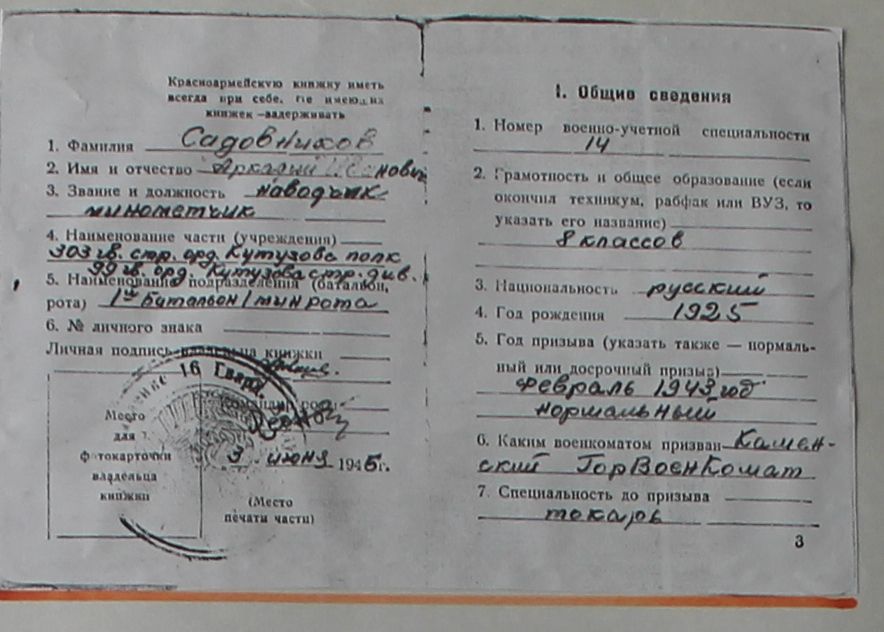 Красноармейскую книжку иметь
всегда при себе. Не имеющих
книжек —задерживать
1. Фамилия Садовников
2. Имя и отчество Аркадий
3. Звание и должность наводчик
минометчик
4. Наименование части (учреждения)
303 гв. стр. орд. Кутузова полк
99 гв. орд. Кутузова стр. див.
5. Наименование подразделения (батальон,
рота) 1ый батальон 1 минрота
6. № личного знака
Личная подпись владельца книжки
16 Гвард.
Командир роты
Место
для
фотокарточки
владельца
книжки
3 июня 1945г.
(Место
печати части)
I. Общие сведения
1. Номер военно-учетной специальности
14
2. Грамотность и общее образование (если
окончил техникум, рабфак или ВУЗ, то
указать его название)
8 классов
3. Национальность русский
4. Год рождения 1925
5. Год призыва (указать также — нормаль-
ный или досрочный призыв)
февраль 1943 год
нормальный
6. Каким военкоматом призван Камен-
ский ГорВоенКомат
7. Специальность до призыва
токарь
3